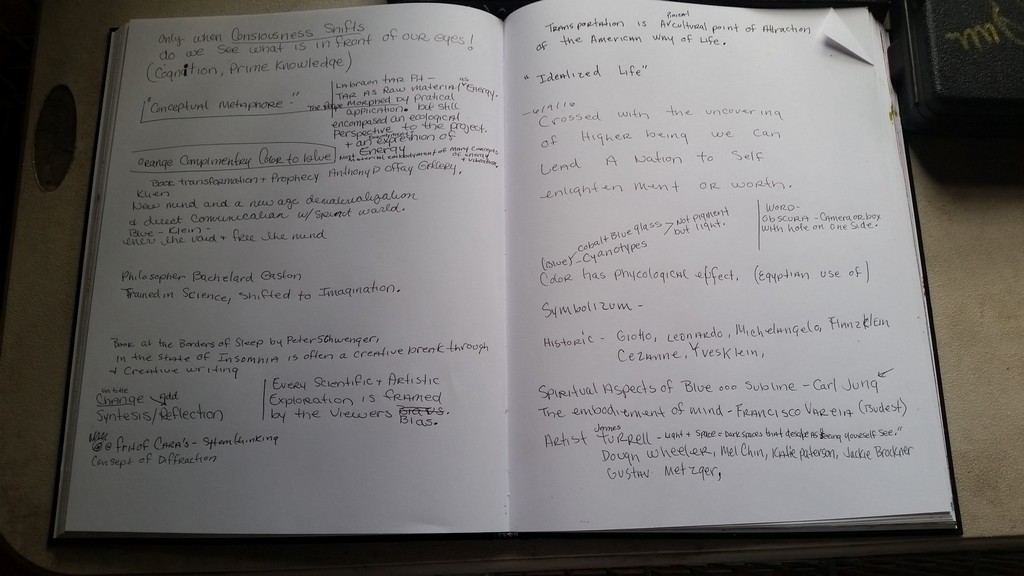 only when Consiousness Shifts
do we see what is in front of our eyes!
(Cognition, Prime Knowledge)
"Conceptual Metaphore."
TAR PH -
TAR AS RAW material as Energy.
The shape Morphed by Pratical
application. but still
encompased an ecological
Perspective to the project.
+ an expression of
Energy
orange Complimentry Color to blue
Book transformation + Prophecy Anthony D Offay Gallery.
Klien
New mind and a new age
& direct Communication w/ world.
Blue - Klein -
enter the void + free the mind
Philosopher Bachelard Gaston
Trained in Science, shifted to Imagination.
Book at the Borders of Sleep by Peter Schwenger,
in the state of Insomnia is often a creative break through
+ Creative writing
Change
Syntesis/Reflection
Every Scientific + Artistic
Exploration is framed
by the viewers
Bias.
@ Fritof CAPRA'S - System thinking
Consept of Diffraction
Transportation is A Pivical cultural point of Attraction
of the American Way of Life.
"Idealized Life"
- 6/9/16
Crossed with the uncovering
of Higher being we can
Lend A Nation to Self
enlighten ment or worth.
cobalt Blue glass > Not pigment
but light.
- Cyanotypes
WORD-
OBSCURA - Camera, or box
with hole on one side.
Color has phycological effect. (Egyptian use of)
Symbolizum -
Historic - Giotto, Leonardo, Michelangelo, Franz Klein
Cezanne, Yves Klein,
Spiritual Aspects of Blue ooo Subline - Carl Jung
The embodivement of mind - FRANCISCO VARELA (Budest)
Artist James Turrell - Light + Space = Dark spaces that yourself see."
Dough wheeler, Mel Chin, Katie paterson, Jackie Brockner
Gustav Metzger,